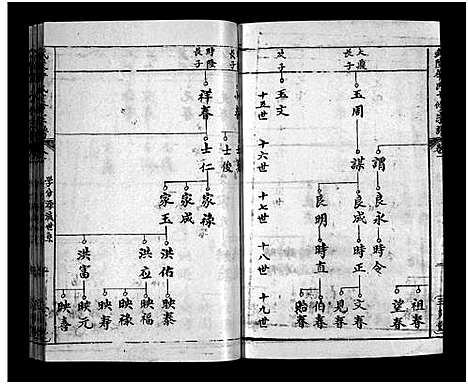 大癡長子
玉周
次子
玉文
十五世
謂
謀
十六世
良永
良成
良明
十七世
時令
時正
時直
十八世
祖春
望春
文春
見春
伯春
貽春
十九世
長子
時隆長子
祥春
士俊
士仁
家祿
家成
家玉
洪佑
洪应
洪富
映泰
映福
映祿
映寿
映元
映喜